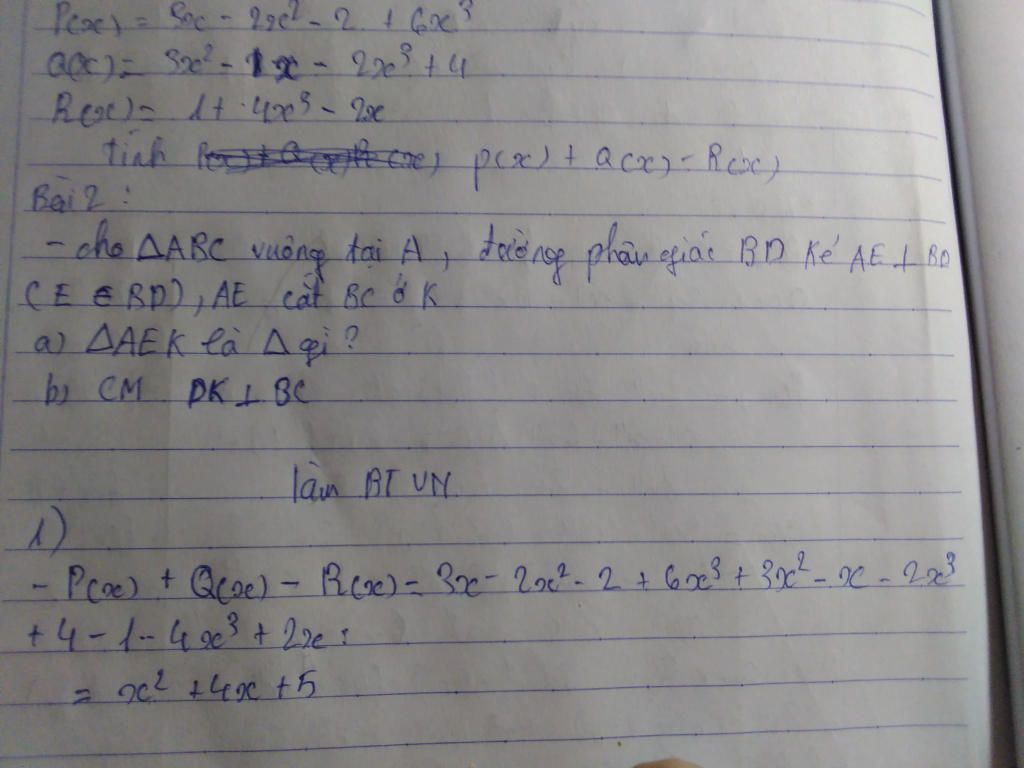 P(x) = 3x - 2x² - 2 + 6x³
Q(x) = 3x² - 1x - 2x³ + 4
R(x) = 1 + 4x³ - 2x
tính p(x) + Q(x) - R(x)
Bài 2 :
- cho ΔABC vuông tại A , đường phân giác BD kẻ AE ⊥ BD
( E ∈ BD ), AE cắt BC ở K
a) ΔAEK là Δ gì ?
b) CM DK ⊥ BC
làm BT VN
1)
- P(x) + Q(x) - R(x) = 3x - 2x² - 2 + 6x³ + 3x² - x - 2x³
+ 4 - 1 - 4x³ + 2x :
= x² + 4x + 5